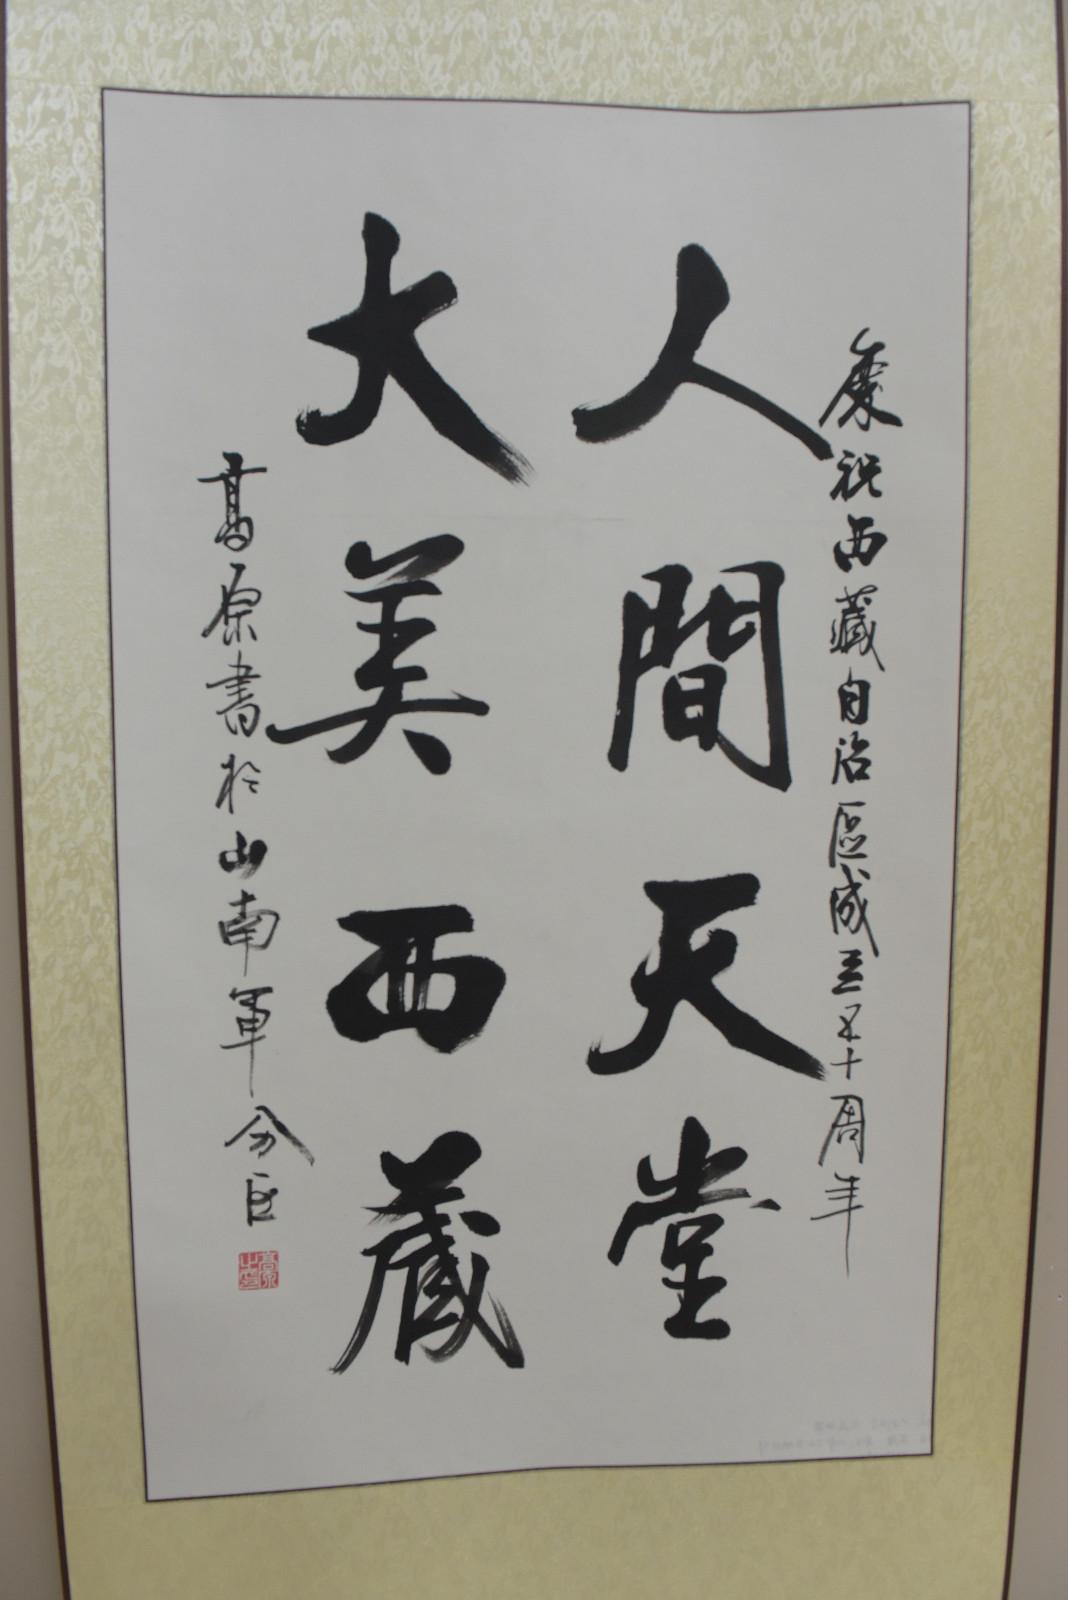 慶祝西藏自治區成立五十周年
人間天堂
大美西藏
高原書於山南軍分區